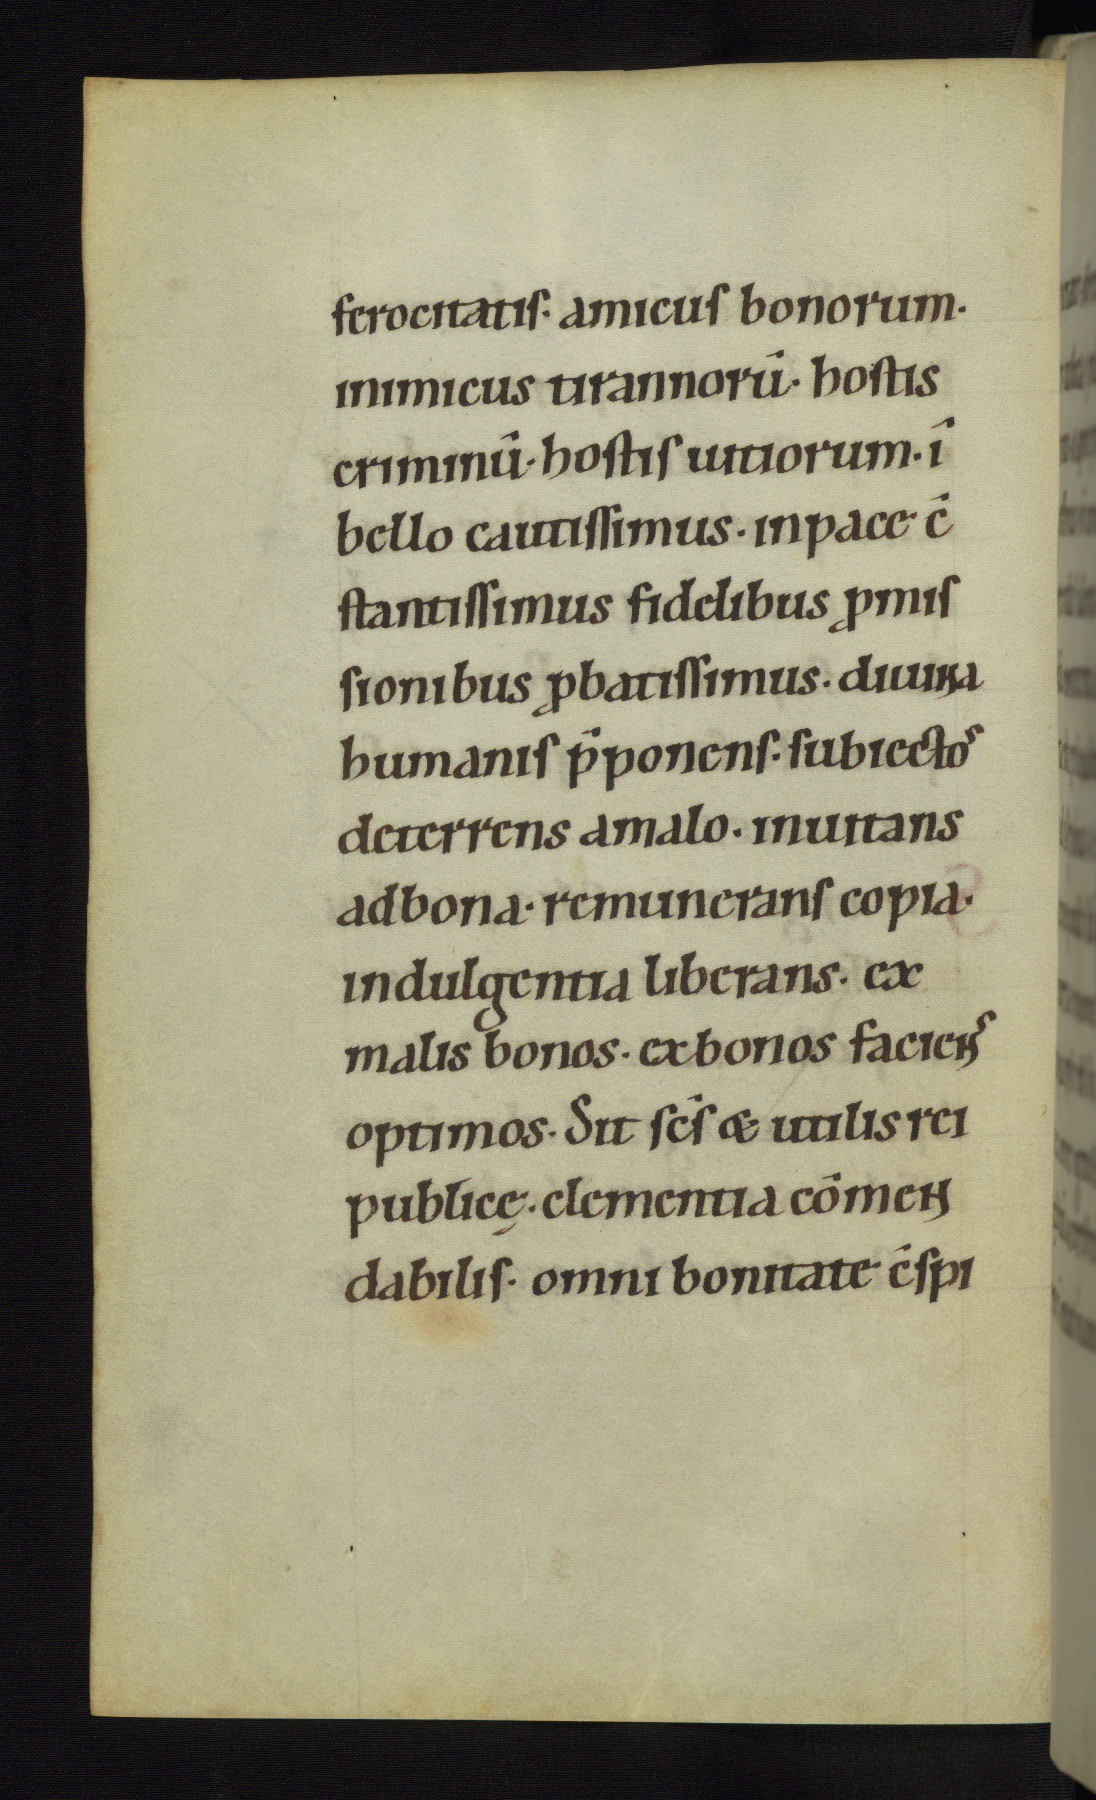 ferocitatis· amicus bonorum·
inimicus tirannorū· hostis
criminū· hostis uitiorum· ī
bello cautissimus· inpace c̄
stantissimus fidelibus ꝓmis
sionibus ꝓbatissimus· diuina
humanis p̄ponens· subiectos
deterrens amalo· inuitans
adbona· remunerans copia·
indulgentia liberans· ex
malis bonos· exbonos faciens
optimos· Sit sc̄s & utilis rei
publicę· clementia cōmen
dabilis· omni bonitate c̄spi